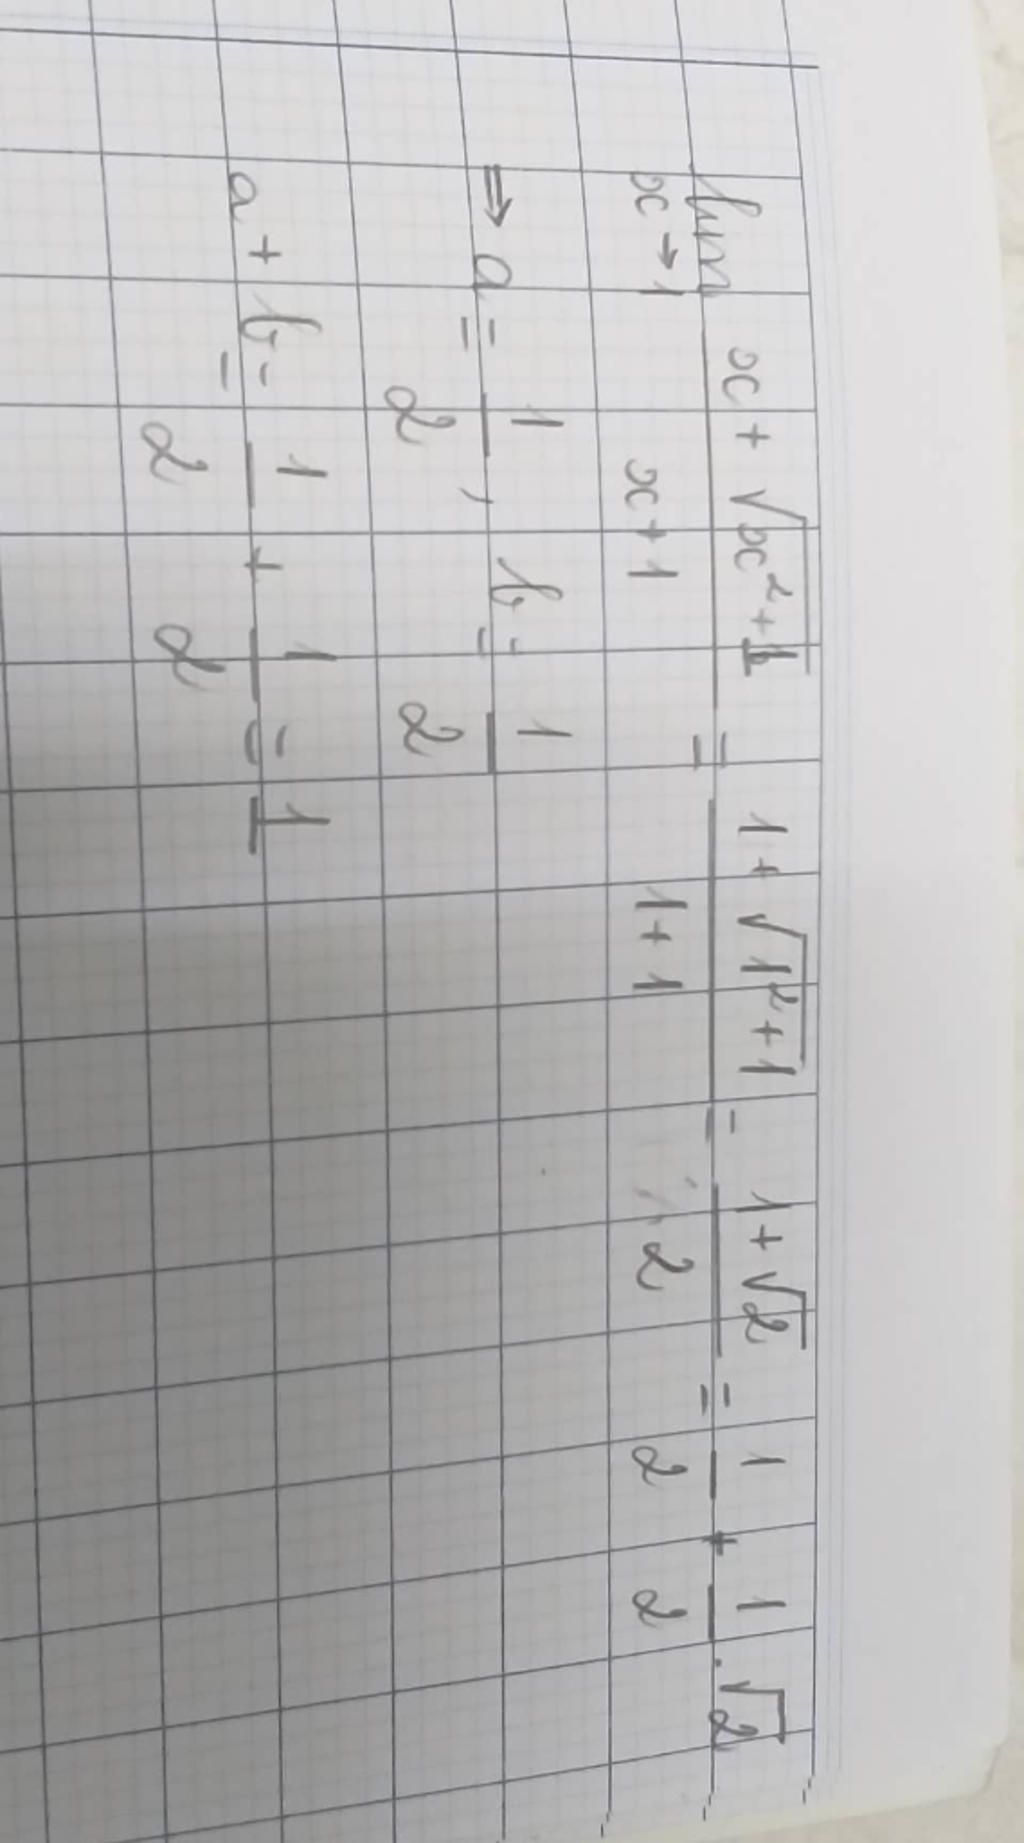 lim x→1 (x + √(x² + 1))/(x + 1) = (1 + √(1² + 1))/(1 + 1) = (1 + √2)/2 = 1/2 + 1/2 . √2
⇒ a = 1/2, b = 1/2
a + b = 1/2 + 1/2 = 1